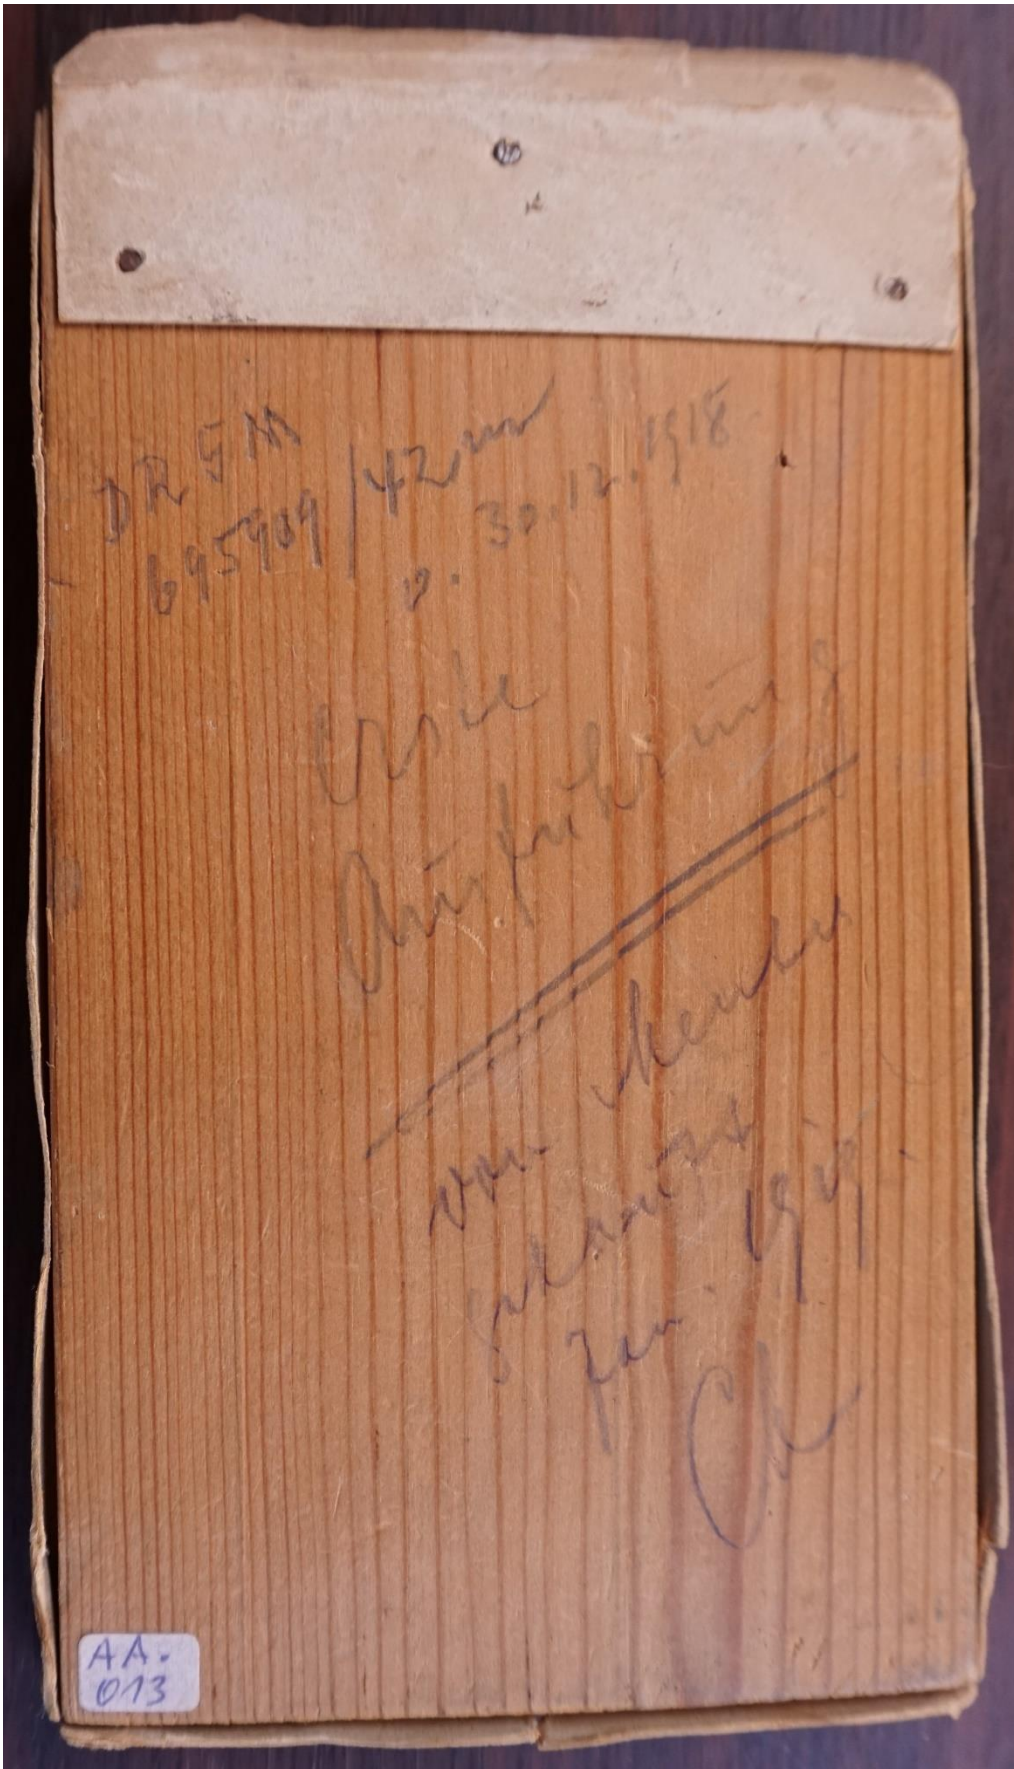 DRGM
695909/42m
v. 30.12.1918
Erste
Ausführung
von
gekauft
Jan. 1919.
Ch
AA.
013